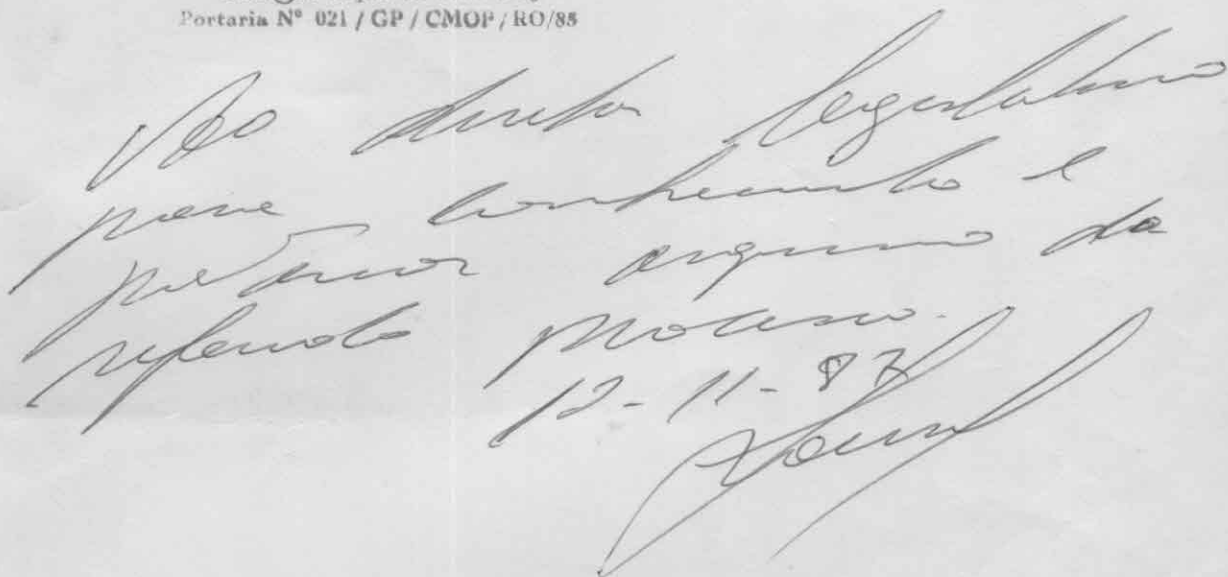 Portaria Nº 021 / GP / CMOP / RO/85
Ao diretor legislativo
para conhecimento e
arquivo da
referido processo.
12-11-87